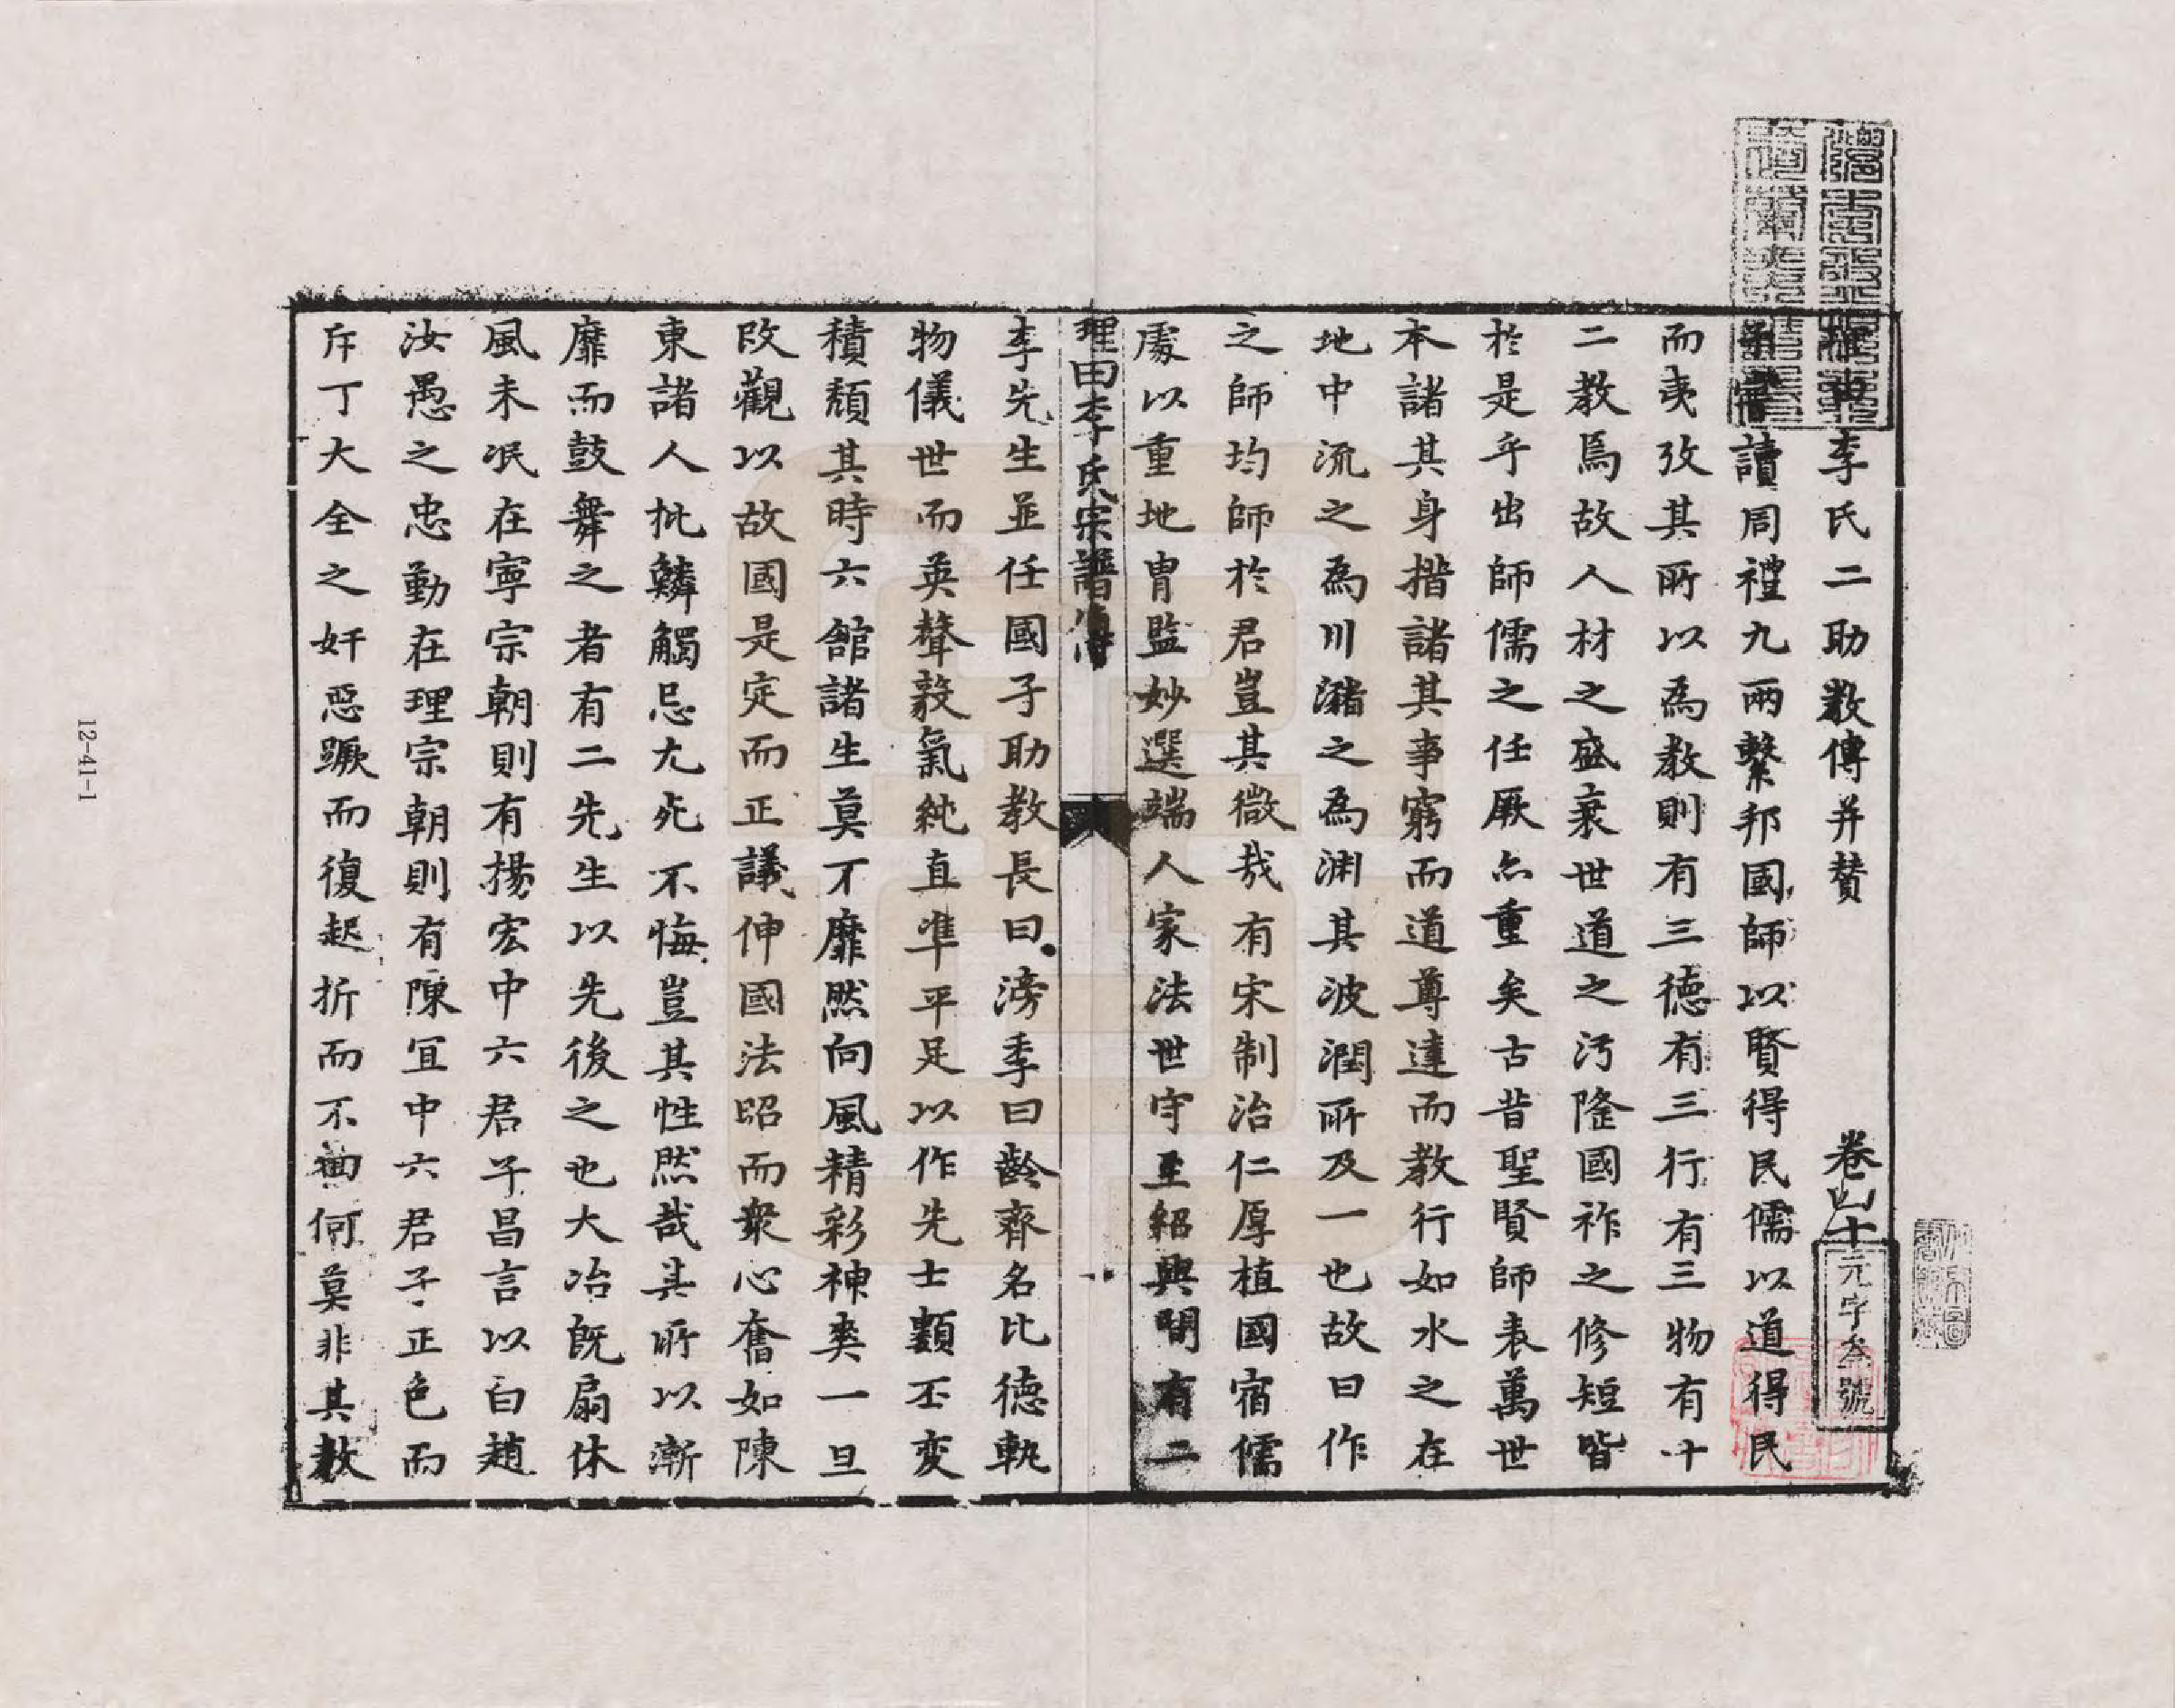 理田李氏二助教傳并賛 卷四十
予嘗讀周禮九兩繫邦國師以賢得民儒以道得民
而夷攷其所以為教則有三德有三行有三物有十
二教焉故人材之盛衰世道之汚隆國祚之修短皆
於是乎出師儒之任厥亦重矣古昔聖賢師表萬世
本諸其身措諸其事窮而道尊達而教行如水之在
地中流之為川瀦之為渊其波潤所及一也故曰作
之師均師於君豈其微哉有宋制治仁厚植國宿儒
處以重地胄監妙選端人家法世守至紹興間有二
理田李氏宗譜傳
李先生並任國子助教長曰滂季曰齡齊名比德軌
物儀世而英聲毅氣純直準平足以作先士類丕变
積頽其時六舘諸生莫不靡然向風精彩神爽一旦
改觀以故國是定而正議伸國法昭而衆心奮如陳
東諸人批鱗觸忌九死不悔豈其性然哉其所以漸
靡而鼓舞之者有二先生以先後之也大冶既扇休
風未泯在寧宗朝則有楊宏中六君子昌言以白趙
汝愚之忠勤在理宗朝則有陳宜中六君子正色而
斥丁大全之奸惡蹶而復起折而不衄何莫非其教
元字叁號
12-41-1